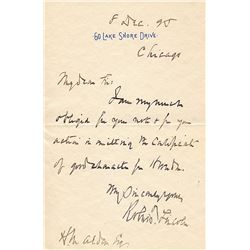 8 Dec. 95
60 LAKE SHORE DRIVE.
Chicago
My dear Sir:
I am very much
obliged for your note & for your
action in the Certificate
of good character for
Very Sincerely yours
Robert Lincoln
Esq